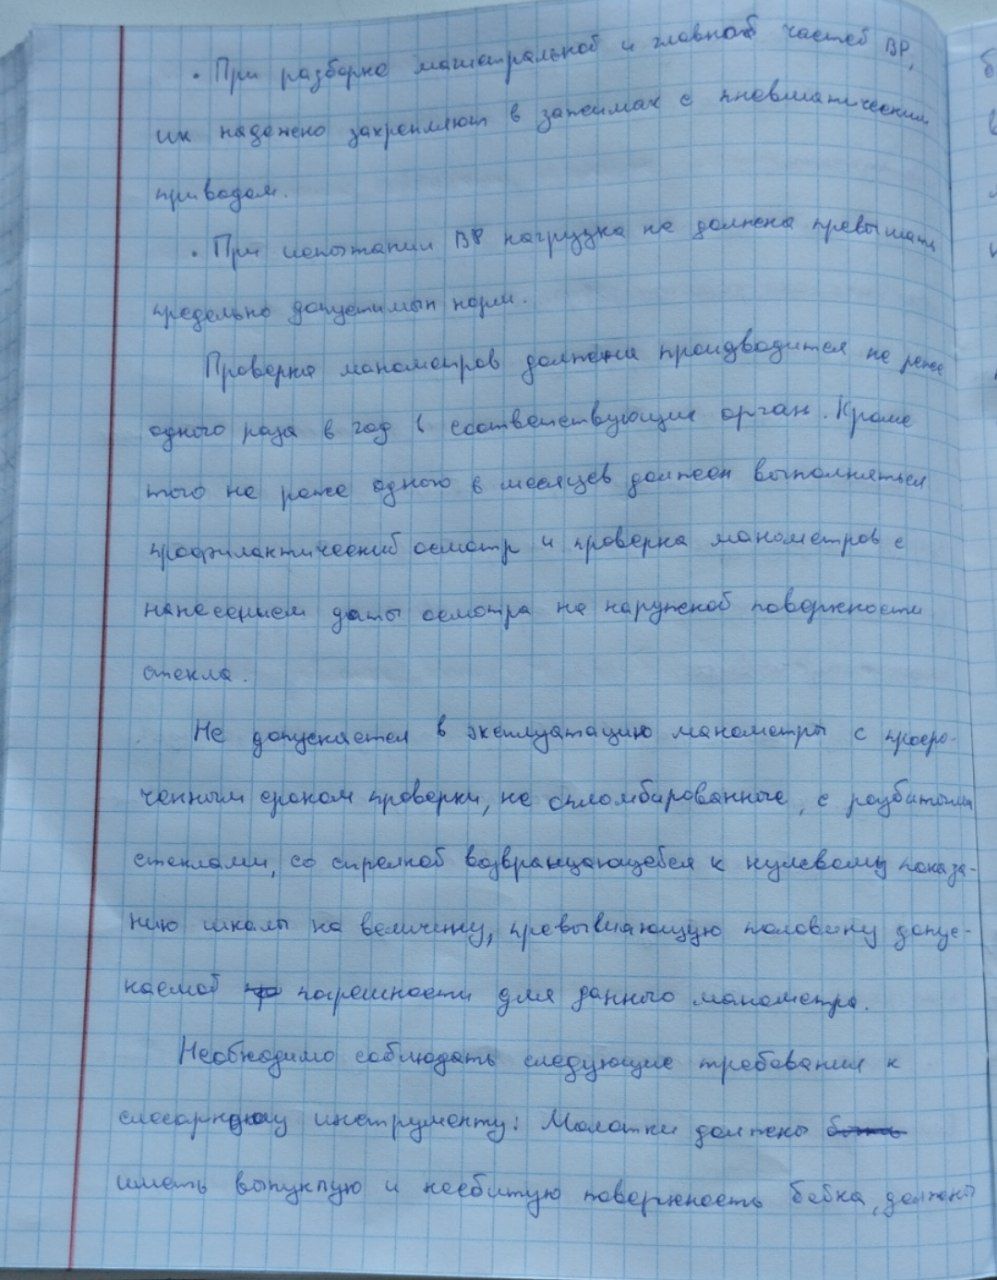 • При разборке магистральной и главной частей ВР,
их надежно закрепляют в зажимах с пневматическим
приводом.
• При испытании ВР нагрузка не должна превышать
предельно допустимых норм.
Проверка манометров должна производится не реже
одного раза в год в соответствующие орган. Кроме
того не реже одного 6 месяцев должен выполняться
профилактический осмотр и проверка манометров с
нанесением даты осмотра на наружной поверхности
стекла.
Не допускается в эксплуатацию манометры с просро-
ченным сроком проверки, не опломбированные, с разбитыми
стеклами, со стрелкой возвращающейся к нулевому показа-
нию шкалы на величину, превышающую половину допус-
каемой погрешности для данного манометра.
Необходимо соблюдать следующие требования к
слесарному инструменту: Молотки должны
иметь выпуклую и несбитую поверхность бойка, должны